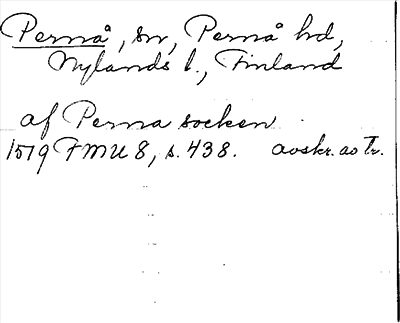 Pernå, sn, Pernå hd,
Nylands l., Finland
af Perna socken
1519 FMU 8, s. 438. avskr. av Tr.